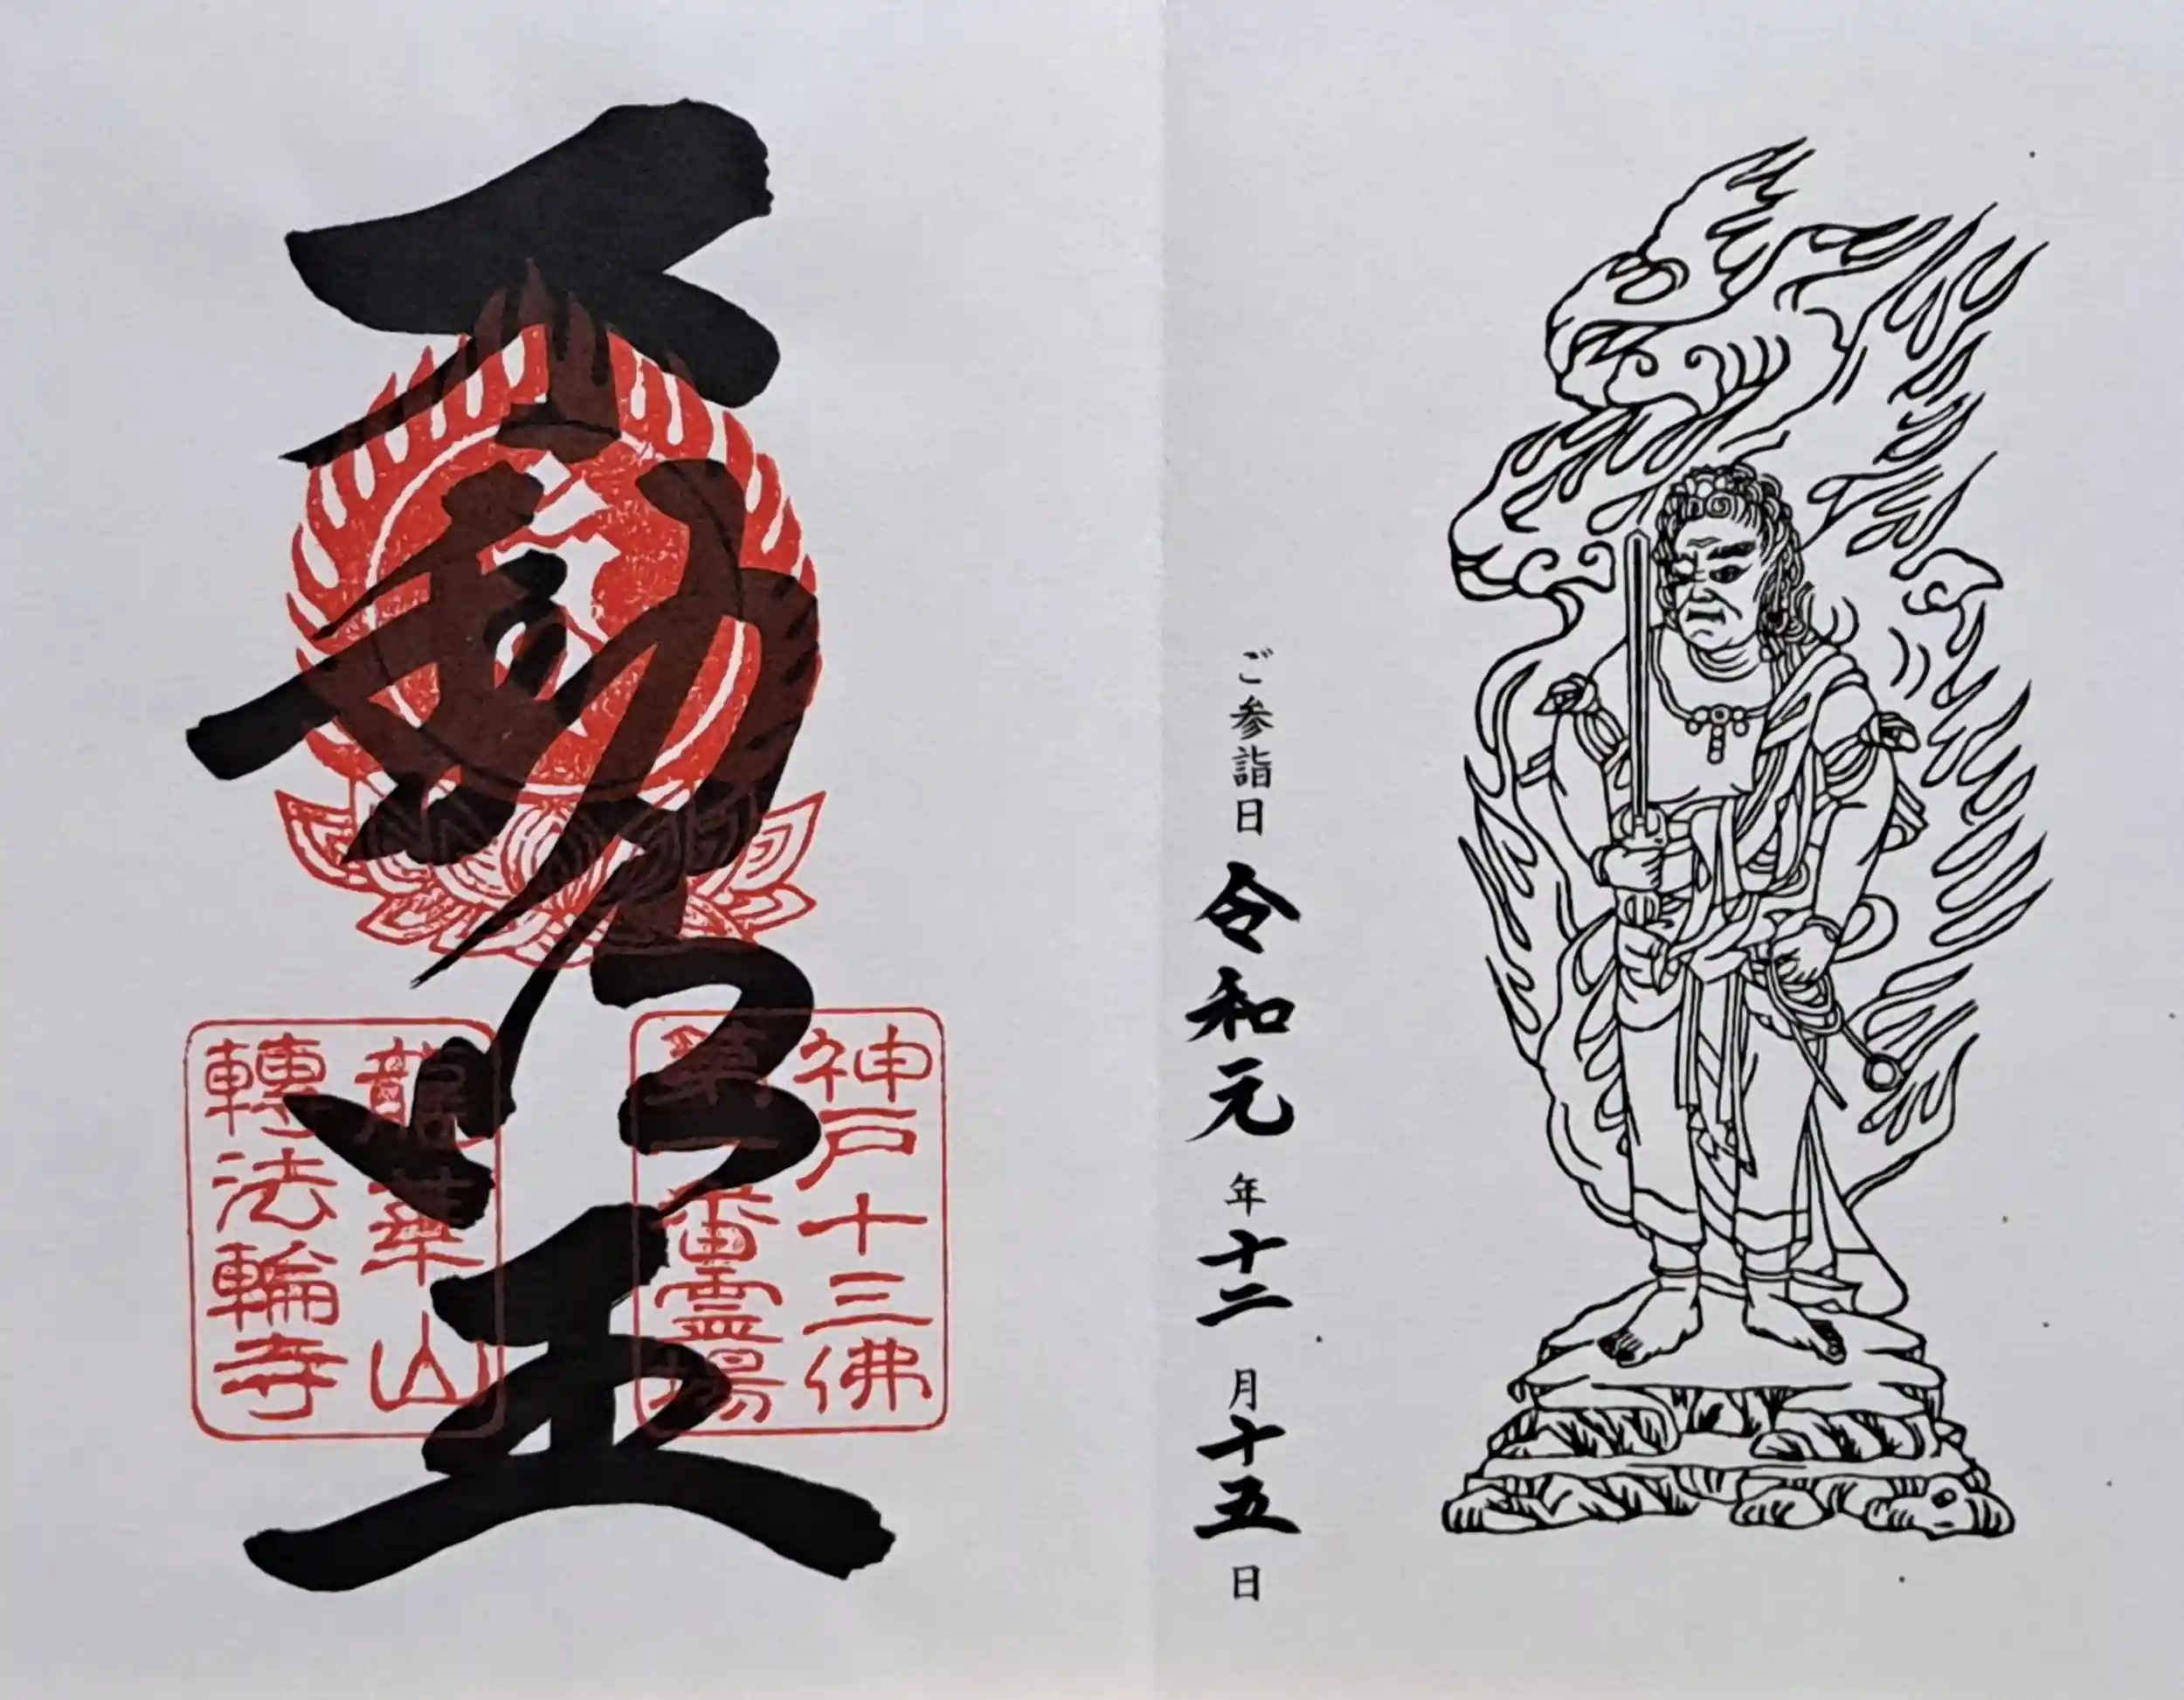 ご参詣日 令和元年十二月十五日
不動明王
神戸十三佛
第一番霊場
龍華山
轉法輪寺